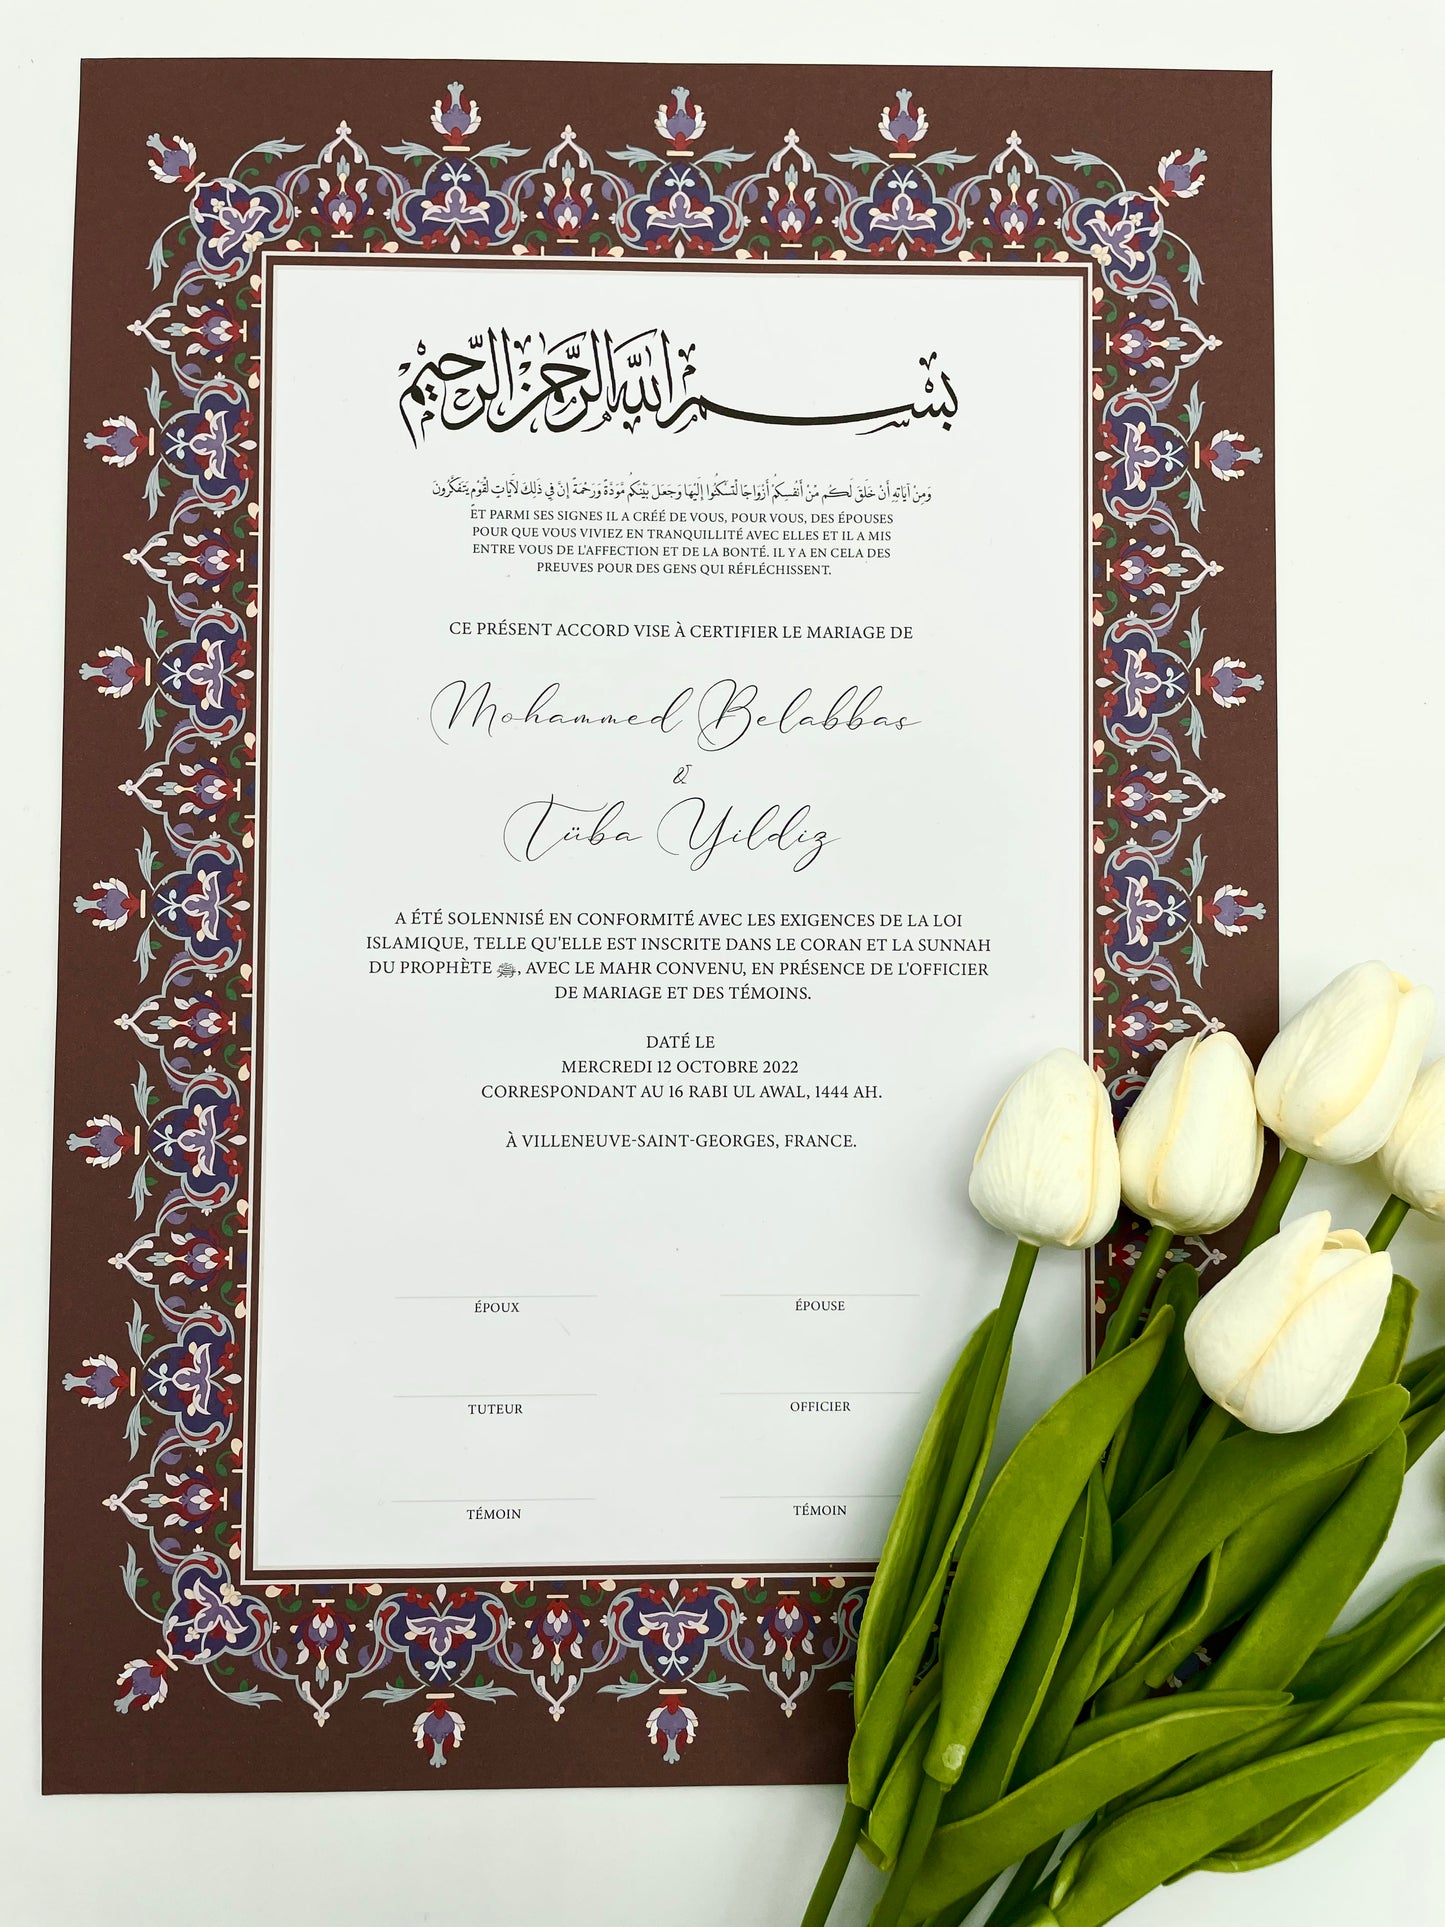 بِسْمِ اللَّهِ الرَّحْمَنِ الرَّحِيمِ
وَمِنْ آيَاتِهِ أَنْ خَلَقَ لَكُم مِّنْ أَنفُسِكُمْ أَزْوَاجًا لِّتَسْكُنُوا إِلَيْهَا وَجَعَلَ بَيْنَكُم مَّوَدَّةً وَرَحْمَةً إِنَّ فِي ذَلِكَ لَآيَاتٍ لِّقَوْمٍ يَتَفَكَّرُونَ
ET PARMI SES SIGNES IL A CRÉÉ DE VOUS, POUR VOUS, DES ÉPOUSES
POUR QUE VOUS VIVIEZ EN TRANQUILLITÉ AVEC ELLES ET IL A MIS
ENTRE VOUS DE L'AFFECTION ET DE LA BONTÉ. IL Y A EN CELA DES
PREUVES POUR DES GENS QUI RÉFLÉCHISSENT.
CE PRÉSENT ACCORD VISE À CERTIFIER LE MARIAGE DE
Mohammed Belabbas
&
Tüba Yildiz
A ÉTÉ SOLENNISÉ EN CONFORMITÉ AVEC LES EXIGENCES DE LA LOI
ISLAMIQUE, TELLE QU'ELLE EST INSCRITE DANS LE CORAN ET LA SUNNAH
DU PROPHÈTE ﷺ, AVEC LE MAHR CONVENU, EN PRÉSENCE DE L'OFFICIER
DE MARIAGE ET DES TÉMOINS.
DATÉ LE
MERCREDI 12 OCTOBRE 2022
CORRESPONDANT AU 16 RABI UL AWAL, 1444 AH.
À VILLENEUVE-SAINT-GEORGES, FRANCE.
ÉPOUX ÉPOUSE
TUTEUR OFFICIER
TÉMOIN TÉMOIN